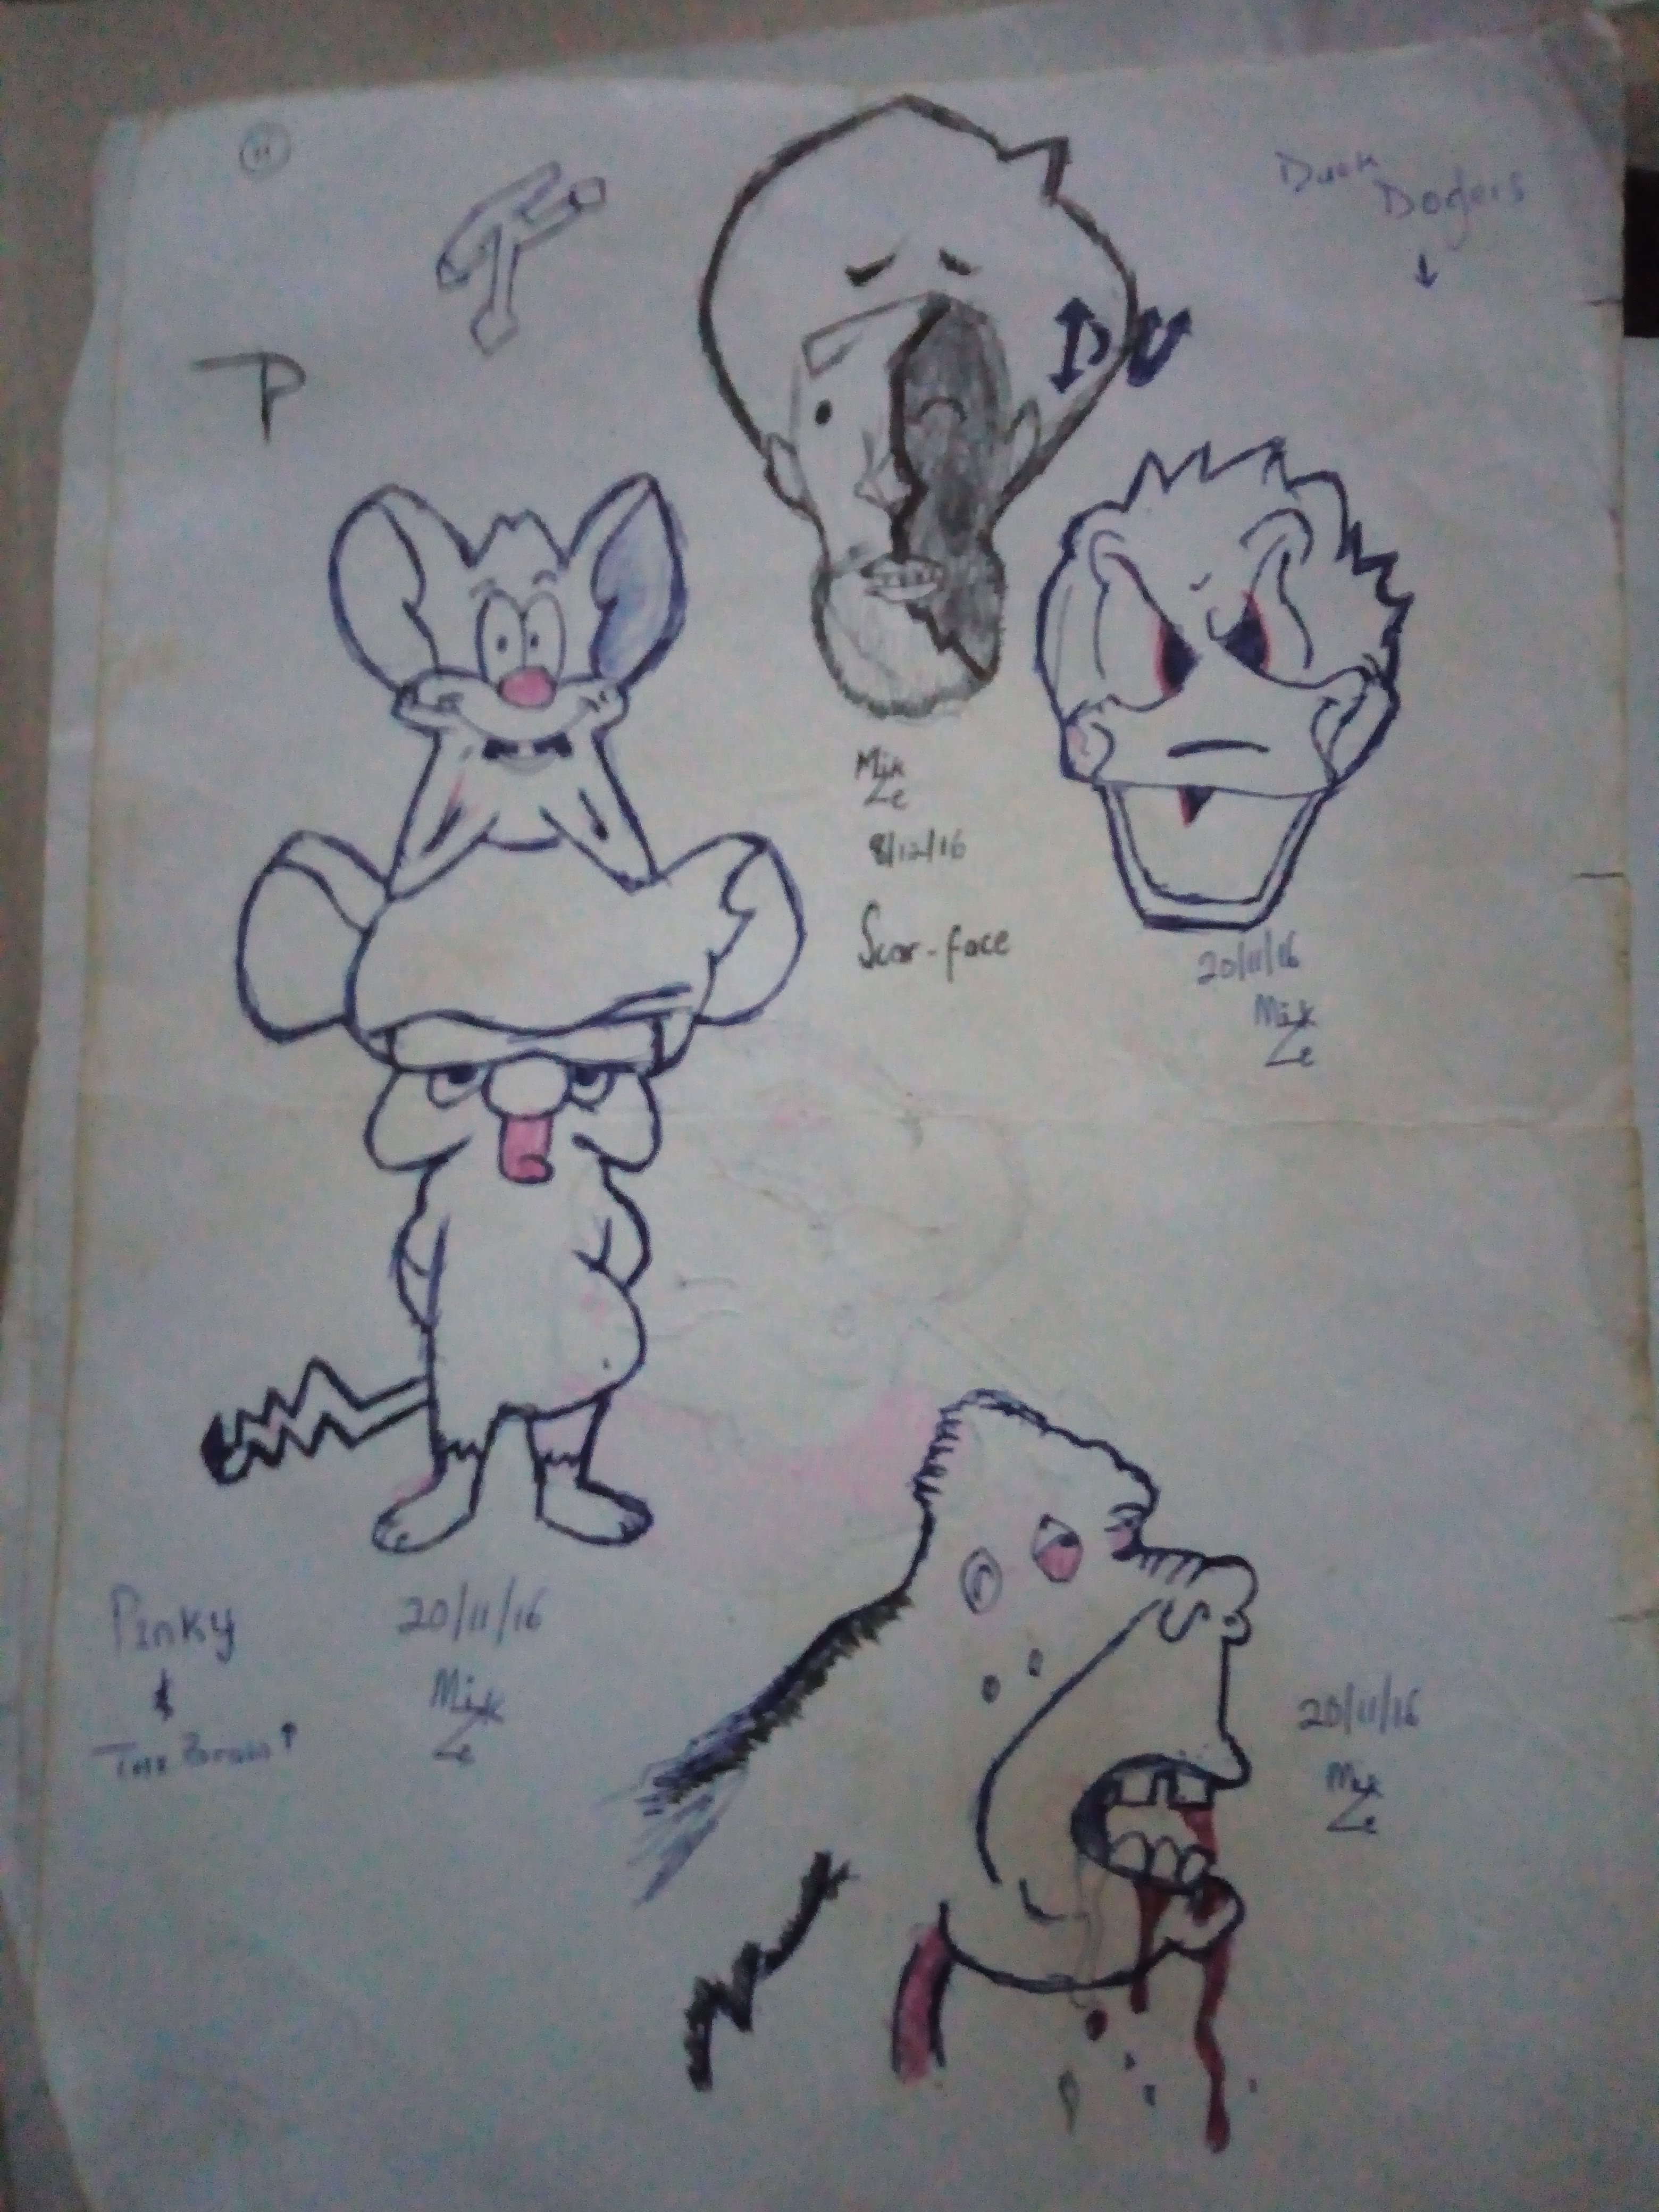 11
Duck
Dogers
P
Mik
Ze
8/12/16
Scar-face
20/11/16
Mik
Ze
Pinky
&
The Barain
20/11/16
Mik
Ze
20/11/16
Mik
Ze